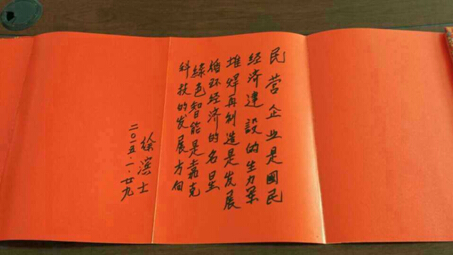 民营企业是國民
经济建設的生力军
堆焊再制造是发展
循环经济的名星
绿色智能是嘉克
科技的发展方向
徐滨士
二〇一五.一.廿九